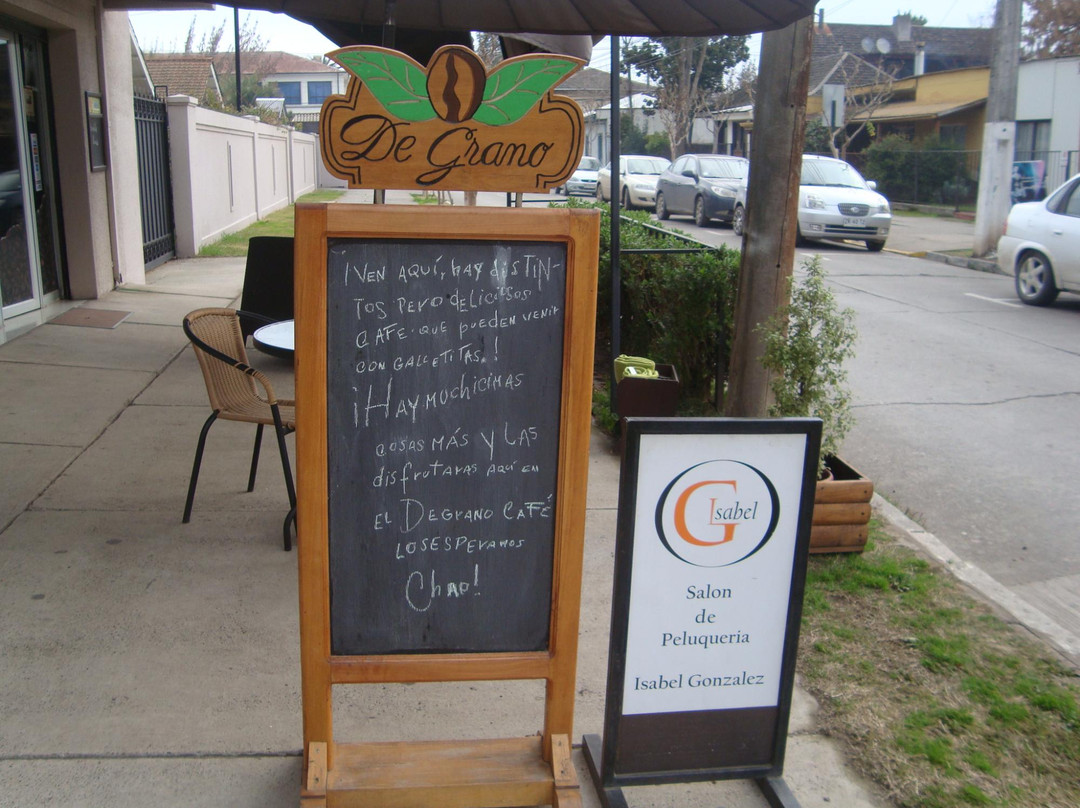 De Grano
¡VEN AQUÍ, HAY disTIN-
TOS PERO dELICIOSOS
CAFE QUE PUEDEN VENIR
CON GALLETITAS.!
¡HAY MUCHICIMAS
COSAS MÁS Y LAS
disfrutaras AQUÍ EN
EL DEGRANO CAFÉ
LOS ESPERAMOS
Chao!
G Isabel
Salon
de
Peluqueria
Isabel Gonzalez